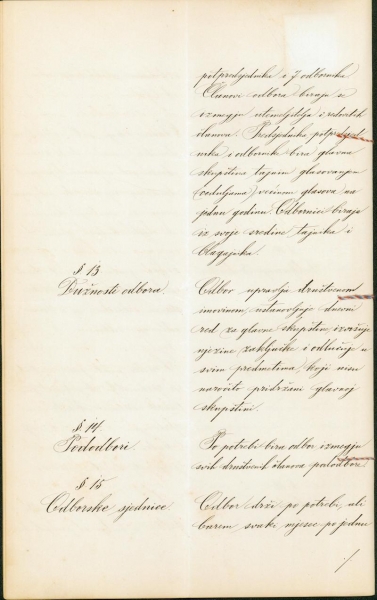 potpredsjednika i 7 odbornika
Članovi odbora biraju se
izmegju utemeljitelja i redovitih
članova. Predsjednika, potpredsjed
nika, i odbornike bira glavna
skupština tajnim glasovanjem
(ceduljama) većinom glasova na
jednu godinu. Odbornici biraju
iz svoje sredine tajnika i
blagajnika.
§ 13
Dužnosti odbora.
Odbor upravlja društvenom
imovinom, ustanovljuje dnevni
red za glavne skupštine, izvršuje
njezine zaključke i odlučuje u
svim predmetima, koji nisu
naročito pridržani glavnoj
skupštini.
§ 14
Pododbori.
Po potrebi bira odbor izmegju
svih društvenih članova pododbore.
§ 15
Odborske sjednice.
Odbor drži po potrebi, ali
barem svaki mjesec po jednu